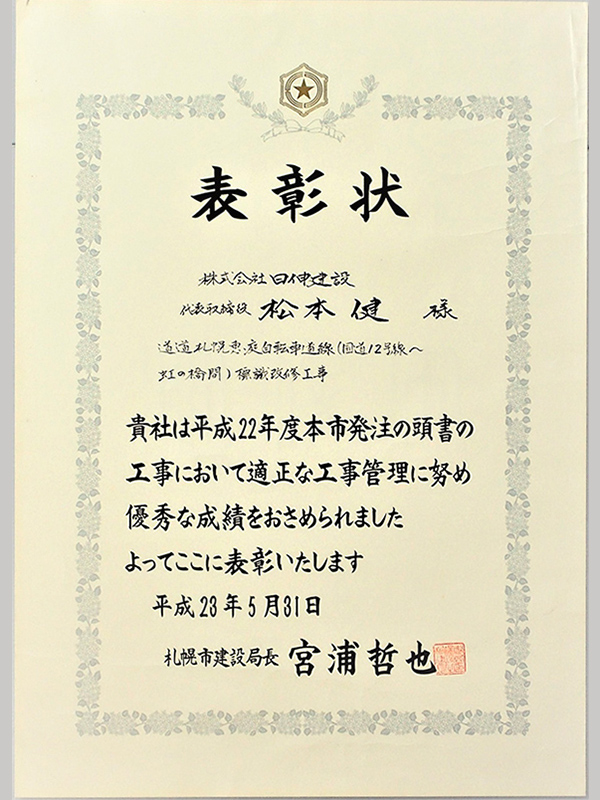 表彰状
株式会社日伸建設
代表取締役 松本健 様
道道札幌恵庭自転車道線(国道12号線へ
虹の橋間)標識改修工事
貴社は平成22年度本市発注の頭書の
工事において適正な工事管理に努め
優秀な成績をおさめられました
よってここに表彰いたします
平成23年5月31日
札幌市建設局長 宮浦哲也